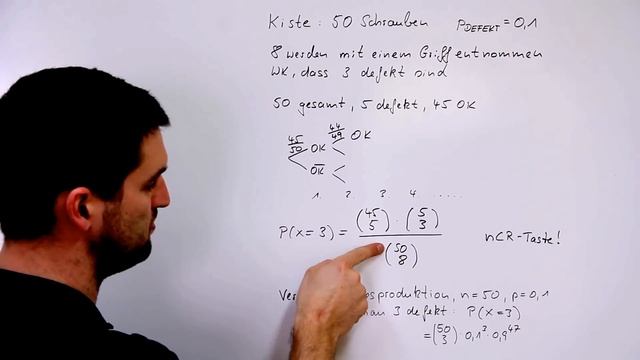 Kiste: 50 Schrauben P DEFEKT = 0,1
8 werden mit einem Griff entnommen
WK, dass 3 defekt sind
50 gesamt, 5 defekt, 45 OK
45/50 OK 44/49 OK
O̅K̅
1. 2. 3. 4. .....
P(X=3) = (45 5) · (5 3) / (50 8) nCR-Taste!
produktion, n=50, p=0,1
3 defekt: P(X=3)
= (50 3) · 0,1³ · 0,9⁴⁷